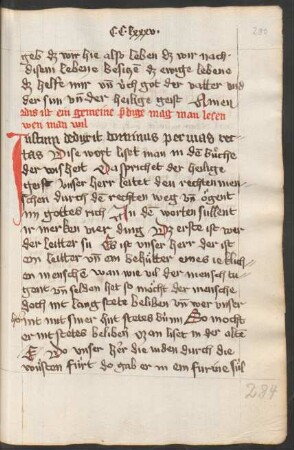 CClxxxv.
280
geb dz wir hie also leben dz wir nach
disem lebene besitze dz ewige lebene
dz helff mir vn̄ v́ch got der vatter vnd
der sun vn̄ der heilige geist Amen
das ist ein gemeine pdige mag man lesen
wen man wil
Iustum deduxit dominus per vias rec
tas Dise wort liset man in dem bůche
der wisheit Da sprichet der heilige
geist vnser herr leitet den rechten men
schen durch de rechten weg vn̄ ögent
im gottes rich An de worten süllent
ir merken vier ding Dz erste ist wer
der leitter si Es ist vnser herr der ist
ein leitter vn̄ ein behůtter eines ieklich
en mensche wan wie vil der mensch tu
gent vn̄ selden het so möcht der mensche
doch nit lang stete beliben vn̄ wer vnser
her nit mit siner hůt stetes bi im So mocht
er nit stetes beliben Man liset in der alte
E Do vnser her die iuden durch die
wůsten fůrt do gab er in ein furine sül
284